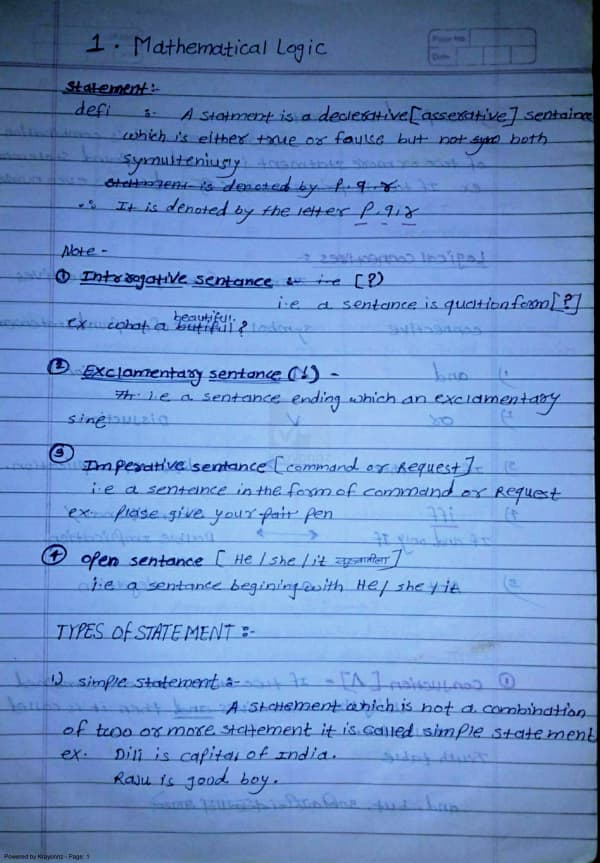 1. Mathematical Logic
Page No.
Date
Statement:-
defi :- A statment is a declerative [asserative] sentaince
which is either true or faulse but not sym both
symulteniusy
statement is denoted by p.q.r
∴ It is denoted by the letter p,q,r
Note -
① Intrrogative sentence :- i-e [?]
i.e a sentence is quationform [?]
beautiful.
ex what a butiful ?
② Exclamentary sentence (!) -
Th: i.e a sentence ending which an exclamentary
sine
③
Imperative sentence [command or Request]
i.e a sentence in the form of command or Request
ex. please give your pair pen
④ open sentence [He/she/it]
i.e a sentence begining with He/she/it
TYPES OF STATEMENT :-
1) simple statement :-
A statement which is not a combination
of two or more statement it is called simple statement
ex. Dili is capital of India.
Raju is good boy.
Powered by Krayonnz - Page: 1